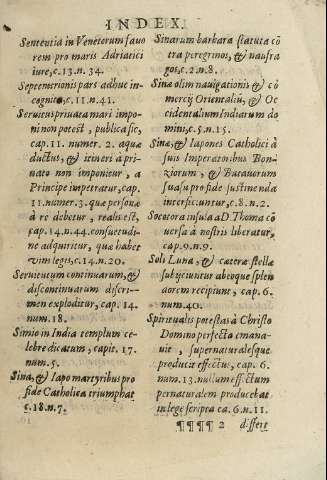 INDEX.
Sententia in Venetorum fauo
rem pro maris Adriatici
iure, c.13.n.34.
Septemtrionis pars adhuc in-
cognita, c.11.n.41.
Seruitus priuata mari impo-
ni non potest, publica sic,
cap.11. numer. 2. aquæ
ductus, & itineri a pri-
uato non imponitur, a
Principe impetratur, cap.
11. numer.3. quæ personæ
à re debetur, realis est,
cap.14.n.44. consuetudi-
ne adquiritur, quæ habet
vim legis, c.14.n.20.
Seruitutum continuarum, &
discontinuarum discri-
men exploditur, cap. 14.
num.18.
Simio in India templum ce-
lebre dicatum, capit. 17.
num.5.
Sina, & Iapo martyribus pro
fide Catholica triumphat
c.18.n.7.
Sinarum barbara statuta cō
tra peregrinos, & naufra
gos, c.2.n.8.
Sina olim nauigationis & cō
mercij Orientaliũ, & Oc
cidentalium Indiarum do
minus, c.5.n.15.
Sinæ, & Iapones Catholici à
suis Imperatoribus Bon-
ziorum, & Batauorum
suasu pro fide sustinenda
interficiuntur, c.8.n.2.
Socotora insula a D. Thoma cō
uersa à nostris liberatur,
cap.9.n.9.
Soli Luna, & cæteræ stellæ
subijciuntur abeoque splen
dorem recipiunt, cap. 6.
num.40.
Spiritualis potestas à Christo
Domino perfecta emana-
uit, supernaturalesque
producit effectus, cap. 6.
num.13. nullum effectum
pernaturalem producebat
in lege scripta ca.6.n.11.
¶¶¶¶ 2 differt